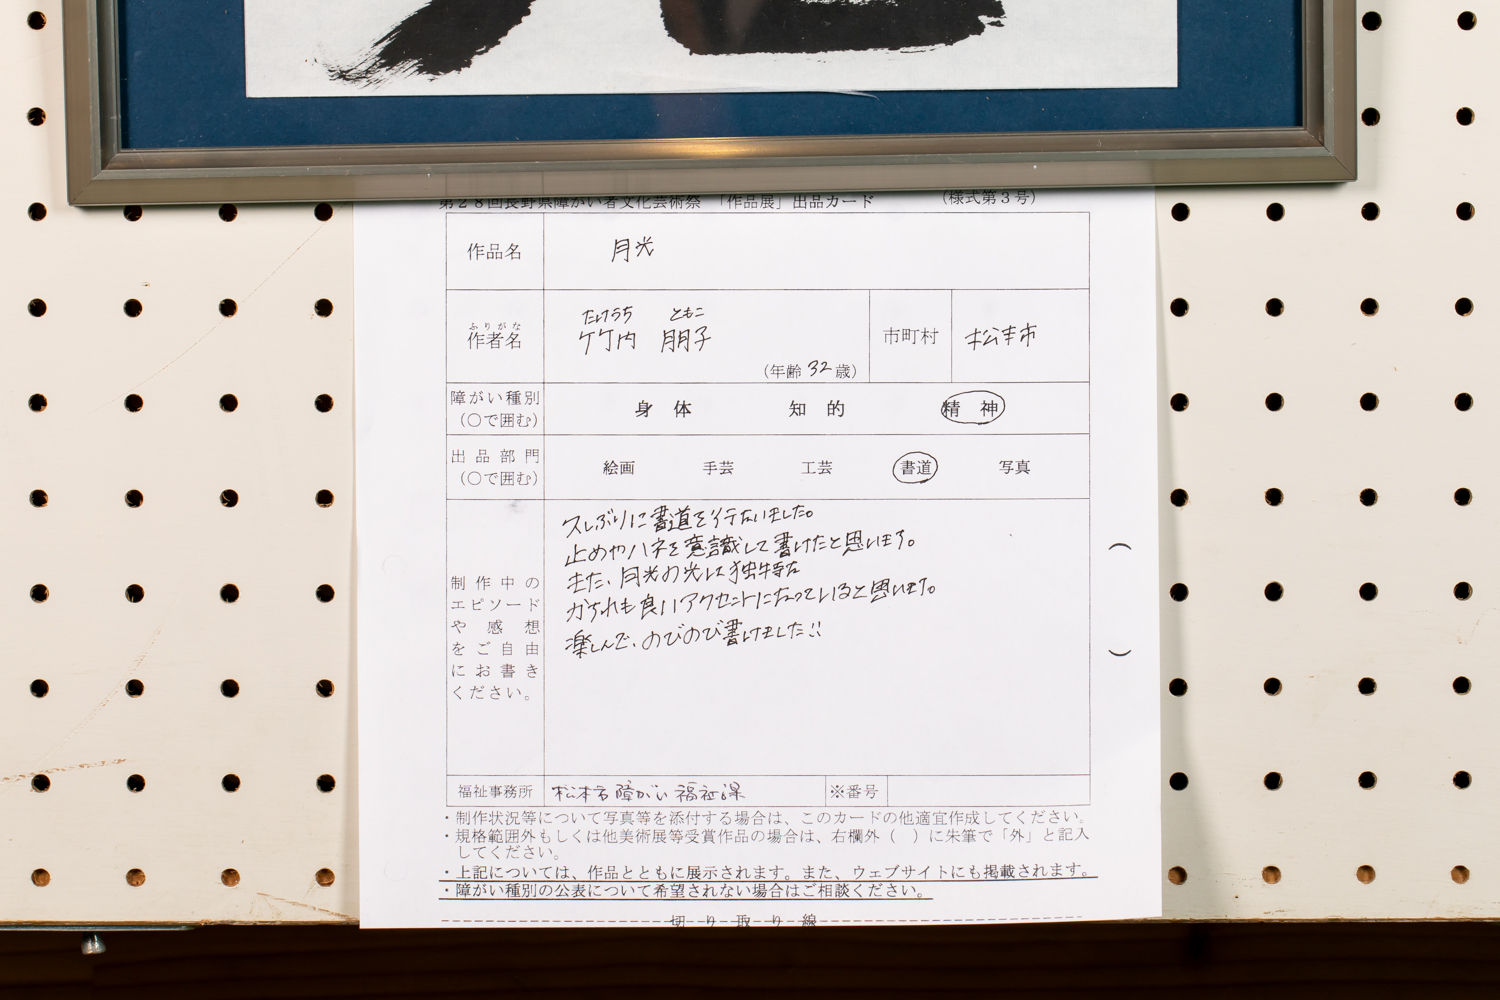 第28回長野県障がい者文化芸術祭 「作品展」出品カード (様式第3号)
作品名 月光
ふりがな たけうち ともこ
作者名 竹内 朋子 市町村 松本市
(年齢 32 歳)
障がい種別 身体 知的 精神
(○で囲む)
出品部門 絵画 手芸 工芸 書道 写真
(○で囲む)
久しぶりに書道を行ないました。
止めやハネを意識して書けたと思います。
また、月光の光は独特な
かすれも良いアクセントになっていると思います。
楽しんで、のびのび書けました!!
制作中の
エピソード
や感想
をご自由
にお書き
ください。
( )
福祉事務所 松本市障がい福祉課 ※番号
・制作状況等について写真等を添付する場合は、このカードの他適宜作成してください。
・規格範囲外もしくは他美術展等受賞作品の場合は、右欄外( )に朱筆で「外」と記入
してください。
・上記については、作品とともに展示されます。また、ウェブサイトにも掲載されます。
・障がい種別の公表について希望されない場合はご相談ください。
切り取り線